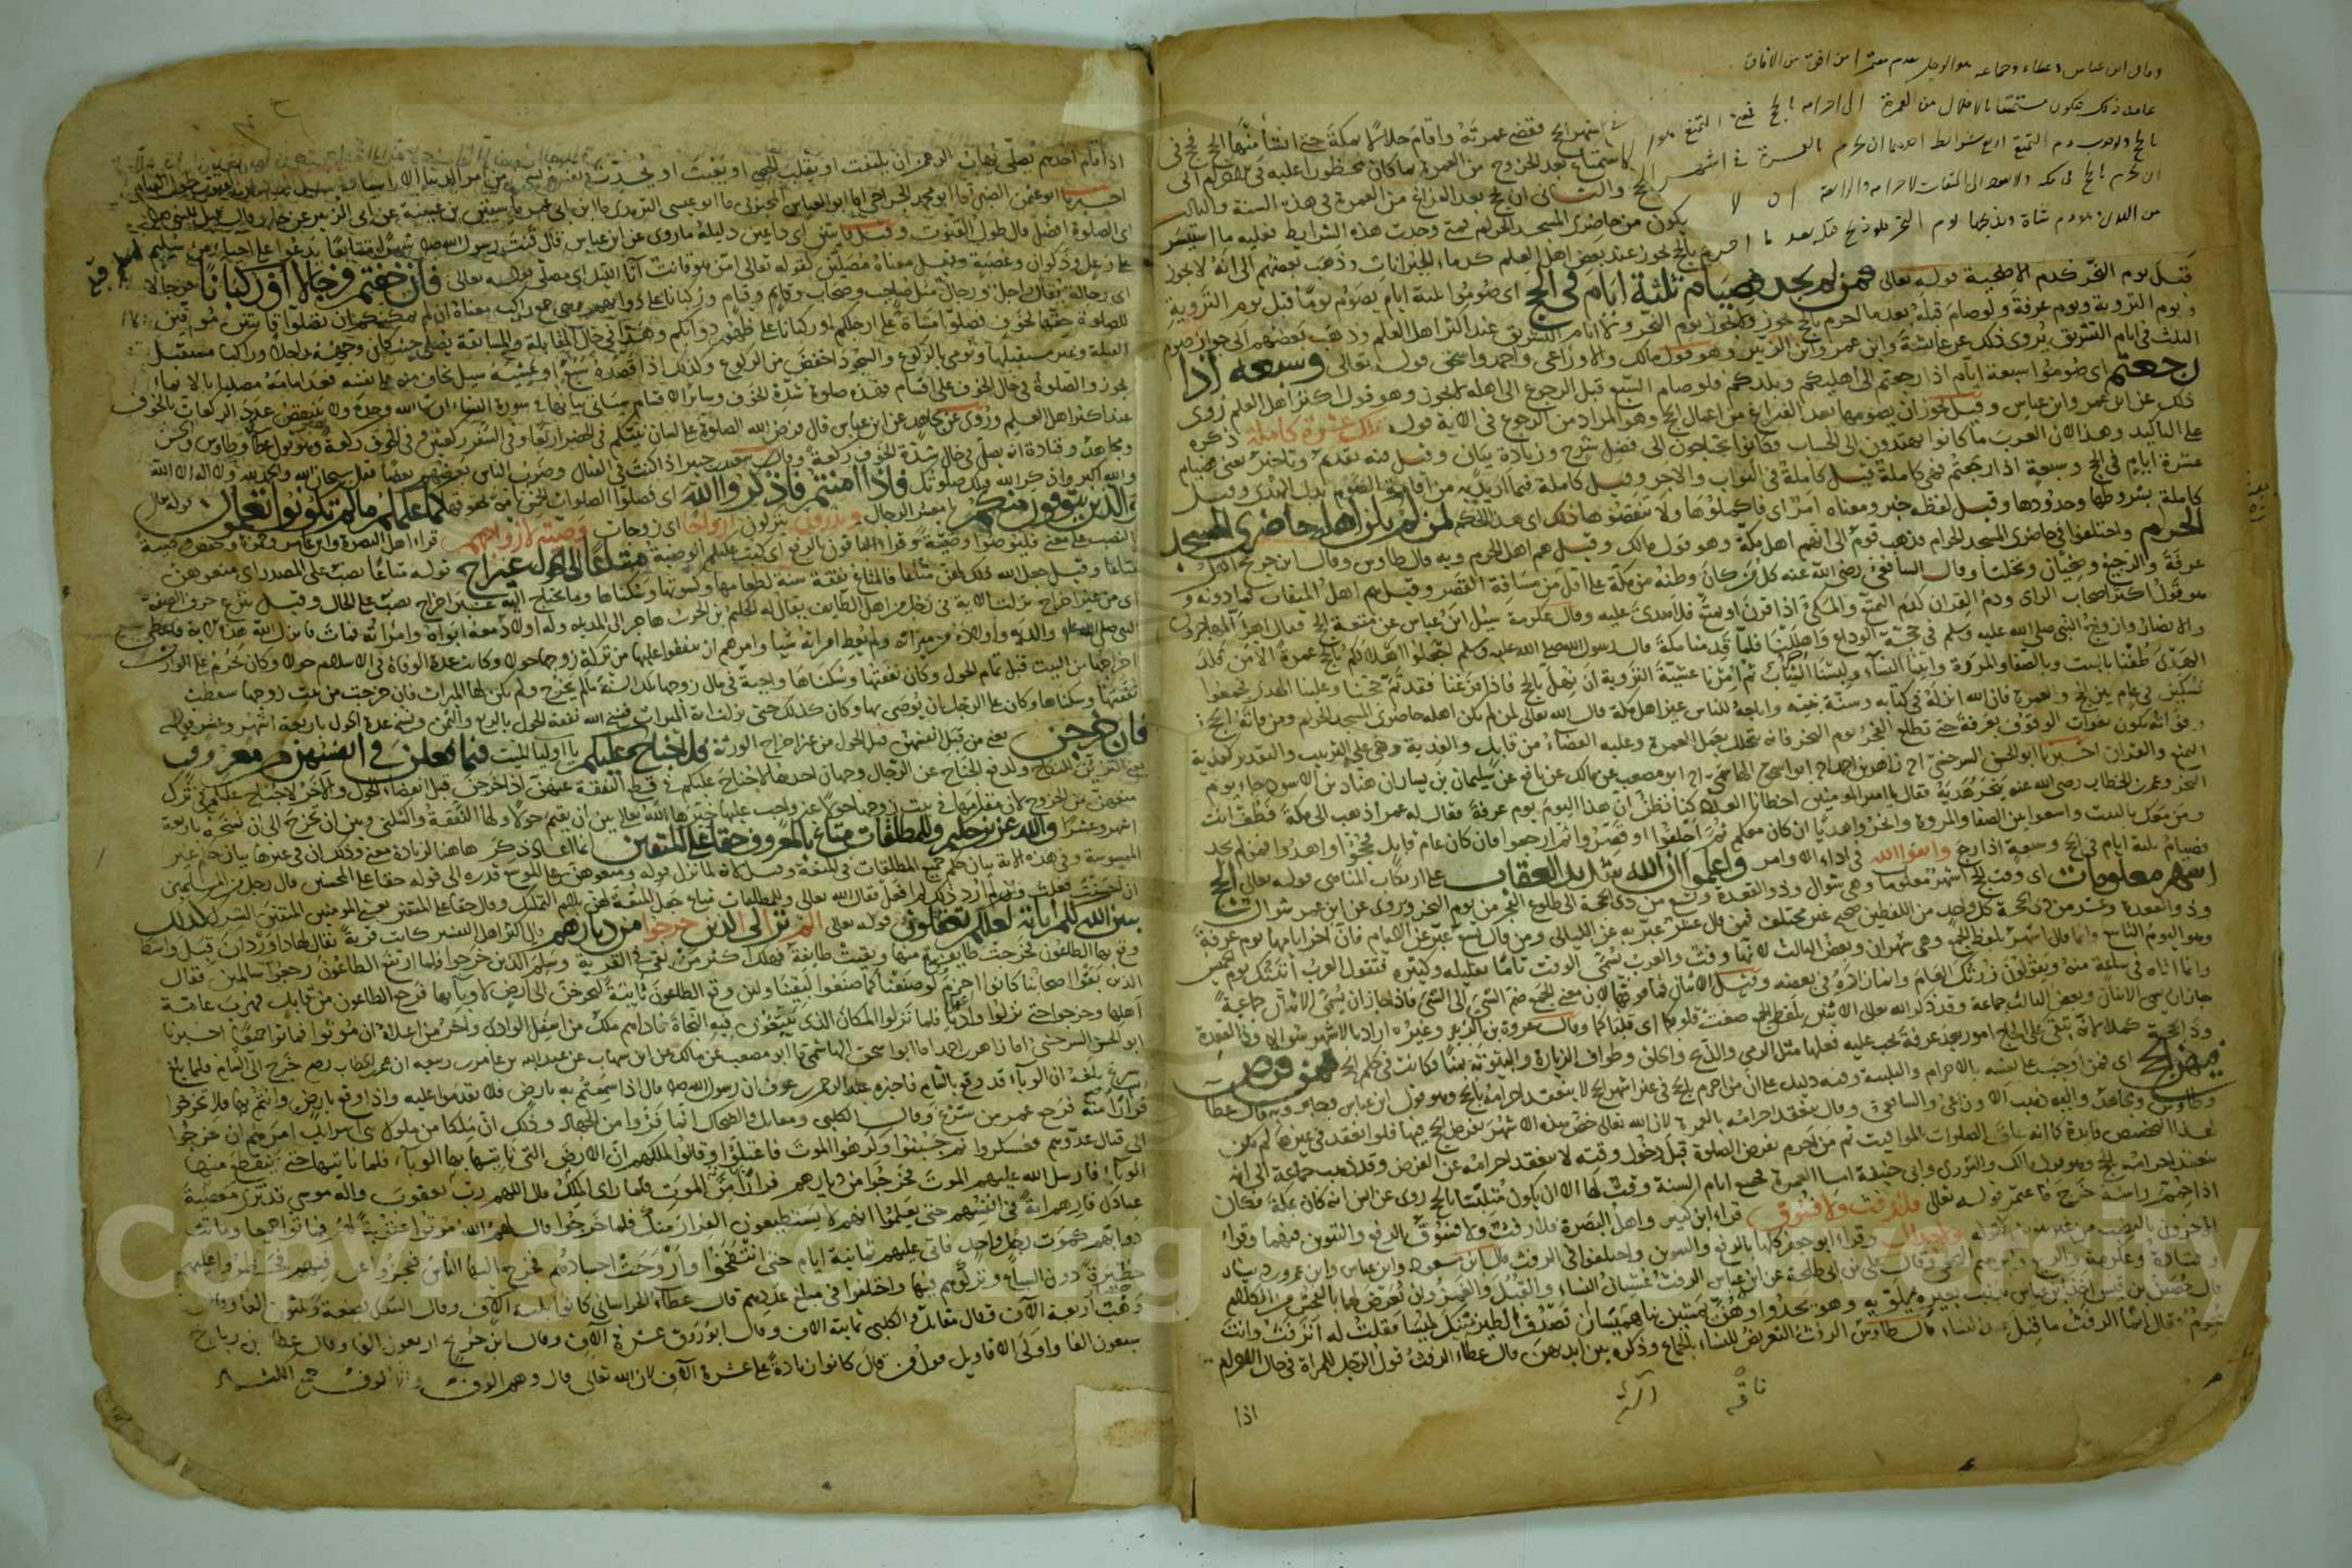 وقال ابن عباس وعطاء وجماعة هو الرجل يقدم معتمرا من افق من الآفاق
في اشهر الحج فقضى عمرته واقام حلالا بمكة حتى انشأ منها الحج فحج من
عامه ذلك فيكون مستمتعا بالاحلال من العمرة الى احرامه بالحج فمعنى التمتع هو
الاستمتاع بعد الخروج من العمرة بما كان محظورا عليه في الاحرام الى
بالحج ولوجوب دم التمتع اربع شرائط احدها ان يحرم بالعمرة في اشهر
الحج والثاني ان يحج بعد الفراغ من العمرة في هذه السنة والثالث
ان يحرم بالحج في مكة ولا يعود الى الميقات لاحرامه والرابعة ان لا
يكون من حاضري المسجد الحرام فمتى وجدت هذه الشرايط فعليه ما استيسر
من الهدي وهو دم شاة يذبحها يوم النحر فلو ذبح قبله بعد ما احرم
بالحج يجوز عند بعض اهل العلم كدماء الجنايات وذهب بعضهم الى انه لا يجوز
قبل يوم النحر كدم الاضحية قوله تعالى فمن لم يجد فصيام ثلثة ايام في الحج اي صوموا ثلثة ايام يصوم يوما قبل يوم التروية
ويوم التروية ويوم عرفة ولو صام قبله بعد ما احرم بالحج جوز ولا يجوز يوم النحر ولا ايام التشريق عند اكثر اهل العلم وذهب بعضهم الى جواز صوم
الثلث في ايام التشريق يروى ذلك عن عائشة وابن عمر وابن الزبير وهو قول مالك والاوزاعي واحمد واسحق قوله تعالى وسبعة اذا
رجعتم اي صوموا سبعة ايام اذا رجعتم الى اهليكم وبلدكم فلو صام السبع قبل الرجوع الى اهله لا يجوز وهو قول اكثر اهل العلم روى
ذلك عن ابن عمر وابن عباس وقيل يجوز ان يصومها بعد الفراغ من اعمال الحج وهو المراد من الرجوع في الاية قوله تلك عشرة كاملة ذكره
على التاكيد وهذا لان العرب ما كانوا يهتدون الى الحساب وكانوا يحتاجون الى فضل شرح وزيادة بيان وقيل فيه تقديم وتاخير يعني فصيام
عشرة ايام في الحج وسبعة اذا رجعتم فهي كاملة قيل كاملة في الثواب والاجر وقيل كاملة فيما اريد به من اقامة الصوم بدل الهدي وقيل
كاملة بشروطها وحدودها وقيل لفظه خبر ومعناه امر اي فاكملوها ولا تنقصوها ذلك اي هذا الحكم لمن لم يكن اهله حاضري المسجد
الحرام واختلفوا في حاضري المسجد الحرام فذهب قوم الى انهم اهل مكة وهو قول مالك وقيل هم اهل الحرم وبه قال طاوس وقال ابن جريج اهل
عرفة والرجيع وضجنان ونخلتان وقال الشافعي رضي الله عنه كل من كان وطنه من مكة على اقل من مسافة القصر وقيل هم اهل الميقات فما دونه و
هو قول اصحاب الراى ودم القران كدم التمتع والمكي اذا قرن او تمتع فلا هدي عليه وقال عكرمة سئل ابن عباس عن متعة الحج فقال اهل المهاجرون
والانصار وازواج النبي صلى الله عليه وسلم في حجة الوداع واهللنا فلما قدمنا مكة قال رسول الله صلى الله عليه وسلم اجعلوا اهلالكم بالحج عمرة الا من قلد
الهدي طفنا بالبيت وبالصفا والمروة واتينا النساء ولبسنا الثياب ثم امرنا عشية التروية ان نهل بالحج فاذا فرغنا فقد تم حجنا وعلينا الهدي فجمعوا
نسكين في عام بين الحج والعمرة فان الله انزله في كتابه وسنة نبيه واباحه للناس غير اهل مكة قال الله تعالى لمن لم يكن اهله حاضري المسجد الحرام ومن فاته الحج
وفواته يكون بفوات الوقوف بعرفة حتى تطلع الفجر يوم النحر فانه يتحلل بعمل العمرة وعليه القضاء من قابل والفدية وهي على الترتيب والتقدير كفدية
التمتع والقران اخبرنا ابو الحسن السرخسي انا زاهر بن احمد انا ابو اسحق الهاشمي انا ابو مصعب عن مالك عن نافع عن سليمان بن يسار ان هناد بن الاسود جاء يوم
النحر وعمر بن الخطاب رضي الله عنه ينحر هديه فقال يا امير المؤمنين اخطانا العدد كنا نظن ان هذا اليوم يوم عرفة فقال له عمر اذهب الى مكة فطف انت
ومن معك بالبيت واسعوا بين الصفا والمروة وانحروا هديا ان كان معكم ثم احلقوا او قصروا ثم ارجعوا فان كان عام قابل فحجوا واهدوا فمن لم يجد
فصيام ثلثة ايام في الحج وسبعة اذا رجع واتقوا الله في اداء الاوامر واعلموا ان الله شديد العقاب على ارتكاب المناهي قوله تعالى الحج
اشهر معلومات اي وقت الحج اشهر معلومات وهي شوال وذو القعدة وتسع من ذي الحجة الى طلوع الفجر من يوم النحر ويروى عن ابن عمر شوال
وذو القعدة وعشر من ذي الحجة كل واحد من اللفظين صحيح غير مختلف فمن قال عشر عبر به عن الليالي ومن قال تسع عبر عن الايام فان اخر ايامها يوم عرفة
وهو اليوم التاسع وانما قال اشهر بلفظ الجمع وهي شهران وبعض الثالث لانها وقت والعرب تسمي الوقت تاما بقليله وكثيره فتقول العرب اتيتك يوم الخميس
وانما اتاه في ساعة منه ويقولون زرتك العام وانما زاره في بعضه وقيل الاثنان فما فوقهما الاثنان معنى الجمع ضم الشيء الى الشيء فاذا جاز ان يسمى الاثنان جماعة
جاز ان يسمى الاثنان وبعض الثالث جماعة وقد ذكر الله تعالى الاثنين بلفظ الجمع صغت قلوبكما اي قلباكما وقال عروة بن الزبير وغيره اراد بالاشهر شوالا وذا القعدة
وذا الحجة كملا لانه يبقى على الحاج امور بعد عرفة يجب عليه فعلها مثل الرمي والذبح والحلق وطواف الزيارة والبيتوتة بمنى فكانت في حكم الحج فمن فرض
فيهن الحج اي فمن اوجب على نفسه بالاحرام والتلبية وفيه دليل على ان من احرم بالحج في غير اشهر الحج لا ينعقد احرامه بالحج وهو قول ابن عباس وجابر وبه قال عطاء
وطاوس ومجاهد واليه ذهب الاوزاعي والشافعي وقال ينعقد احرامه بالعمرة لان الله تعالى خص هذه الاشهر بفرض الحج فيها فلو انعقد في غيرها لم يكن
لهذا التخصيص فايدة كما انه علق الصلوات بالمواقيت ثم من احرم بفرض الصلوة قبل دخول وقته لا ينعقد احرامه عن الفرض وقد ذهب جماعة الى انه
ينعقد احرامه بالحج وهو قول مالك والثوري وابي حنيفة اما العمرة فجميع ايام السنة وقت لها الا ان يكون متلبسا بالحج روى عن انس انه كان بمكة فكان
اذا حمم راسه خرج فاعتمر قوله تعالى فلا رفث ولا فسوق قرا ابن كثير واهل البصرة فلا رفث ولا فسوق بالرفع والتنوين فيهما وقرا
الاخرون بالنصب من غير تنوين كقوله ولا جدال وقرا ابو جعفر كلها بالرفع والتنوين واختلفوا في الرفث قال ابن مسعود وابن عباس وابن عمر
وقتادة وعكرمة والربيع وابراهيم النخعي وقال علي بن ابي طلحة عن ابن عباس الرفث غشيان النساء والقبلة والغمز وان يعرض لها بالفحش من الكلام
قال حصين بن قيس اخذ ابن عباس بذنب بعيره يلويه وهو يحدو وهن يمشين بنا هميسا ان تصدق الطير ننك لميسا فقلت له اترفث وانت
محرم فقال انما الرفث ما قيل عند النساء قال طاوس الرفث التعريض للنساء بالجماع وذكره بين ايديهن قال عطاء الرفث قول الرجل للمراة في حال الاحرام
اذا
اذا قام احدهم يصلي يهاب الرحمن ان يلتفت او يقلب الحصى او يعبث او يحدث نفسه بشيء من امر الدنيا الا ناسيا
اخبرنا ابو عثمن الضبي انا ابو محمد الجراحي انا ابو العباس المحبوبي انا ابو عيسى الترمذي انا ابن ابي عمر انا سفين بن عيينة عن ابي الزبير عن جابر قال قيل للنبي
اي الصلوة افضل قال طول القنوت وقيل قانتين اي داعين دليله ما روى عن ابن عباس قال قنت رسول الله صلى الله شهرا متتابعا يدعو على احياء من سليم
على رعل وذكوان وعصية وقيل معناه مصلين كقوله تعالى امن هو قانت آناء الليل اي مصلي قوله تعالى فان خفتم فرجالا او ركبانا فرجالا
اي رجالة يقال راجل ورجال مثل صاحب وصحاب وقايم وقيام وركبانا على دوابهم وهي جمع راكب معناه ان لم يمكنكم ان تصلوا قانتين موفين
للصلوة حقها لخوف فصلوا مشاة على ارجلكم او ركبانا على ظهور دوابكم وهذا في حال المقاتلة والمسايفة يصلي حيث كان وجهه راجلا وراكبا مستقبل
القبلة وغير مستقبلها ويومي بالركوع والسجود اخفض من الركوع وكذلك اذا قصده سبع او غشيه سيل يخاف منه على نفسه فعدا امامه مصليا بالايماء
يجوز والصلوة في حال الخوف على اقسام فهذه صلوة شدة الخوف وسائر الاقسام سياتي بيانها في سورة النساء ان شاء الله وحده ولا ينتقص عدد الركعات بالخوف
عند اكثر اهل العلم وروى عن مجاهد عن ابن عباس قال فرض الله الصلوة على لسان نبيكم في الحضر اربعا وفي السفر ركعتين وفي الخوف ركعة وهو قول عطاء وطاوس والحسن
ومجاهد وقتادة انه يصلي في حال شدة الخوف ركعة وقال سعيد بن جبير اذا كنت في القتال وضرب الناس بعضهم بعضا فقل سبحان الله والحمد لله ولا اله الا الله
والله اكبر واذكر الله فتلك صلوتك فاذا امنتم فاذكروا الله اي فصلوا الصلوات الخمس تامة بحقوقها كما علمكم ما لم تكونوا تعلمون قوله تعالى
والذين يتوفون منكم يا معشر الرجال ويذرون يتركون ازواجا اي زوجات وصية لازواجهم قراء اهل البصرة وابن عامر وحمزة وحفص وصية
بالنصب على معنى فليوصوا وصية وقراء الباقون بالرفع اي كتب عليكم الوصية متاعا الى الحول غير اخراج قوله متاعا نصب على المصدر اي متعوهن
متاعا وقيل جعل الله ذلك لهن متاعا فالمتاع نفقة سنة لطعامها وكسوتها وسكناها وما تحتاج اليه غير اخراج نصب على الحال وقيل بنزع حرف الصفة
اي من غير اخراج نزلت الاية في رجل من اهل الطايف يقال له حكيم بن الحرث هاجر الى المدينة وله اولاد معه ابواه وامراته فمات فانزل الله هذه الاية فاعطى
النبي صلى الله عليه والديه واولاده من ميراثه ولم يعط امراته شيا وامرهم ان ينفقوا عليها من تركة زوجها حولا وكانت عدة الوفاة في الاسلام حولا وكان يحرم على الوارث
اخراجها من البيت قبل تمام الحول وكان نفقتها وسكناها واجبة في مال زوجها تلك السنة ما لم تخرج ولم يكن لها الميراث فان خرجت من بيت زوجها سقطت
نفقتها وسكناها وكان على الرجل ان يوصي بها وكان كذلك حتى نزلت اية الميراث فنسخ الله نفقة الحول بالربع والثمن ونسخ عدة الحول باربعة اشهر وعشر
فان خرجن يعني من قبل انفسهن قبل الحول من غير اخراج الورثة فلا جناح عليكم يا اولياء الميت فيما فعلن في انفسهن من معروف
يعني التزين للنكاح ولرفع الجناح عن الرجال وجهان احدهما لا جناح عليكم في قطع النفقة عنهن اذا خرجن قبل انقضاء الحول والاخر لا جناح عليكم في ترك
منعهن من الخروج لان مقامها في بيت زوجها حولا غير واجب عليها خيرها الله تعالى بين ان تقيم حولا ولها النفقة والسكنى وبين ان تخرج الى ان نسخه باربعة
اشهر وعشرا والله عزيز حكيم وللمطلقات متاع بالمعروف حقا على المتقين انما اعاد ذكر هاهنا لزيادة معنى وذلك ان في غيرها بيان حكم غير
الممسوسة وفي هذه الاية بيان حكم جميع المطلقات في المتعة وقيل لانه لما نزل قوله ومتعوهن على الموسع قدره الى قوله حقا على المحسنين قال رجل من المسلمين
ان احسنت فعلت وان لم ارد ذلك لم افعل فقال الله تعالى وللمطلقات متاع جعل المتعة لهن بلام التمليك وقال حقا على المتقين يعني المومنين المتقين الشرك كذلك
يبين الله لكم آياته لعلكم تعقلون قوله تعالى الم تر الى الذين خرجوا من ديارهم قال اكثر اهل التفسير كانت قرية يقال لها داوردان قبل واسط
وقع بها الطاعون فخرجت طايفة منها وبقيت طايفة فهلك اكثر من بقي في القرية وسلم الذين خرجوا فلما ارتفع الطاعون رجعوا سالمين فقال
الذين بقوا اصحابنا كانوا احزم لو صنعنا كما صنعوا لبقينا ولئن وقع الطاعون ثانية لنخرجن الى ارض لا وباء بها فرجع الطاعون من قابل فهرب عامة
اهلها وخرجوا حتى نزلوا واديا فلما نزلوا المكان الذي يبتغون فيه النجاة ناداهم ملك من اسفل الوادي واخر من اعلاه ان موتوا فماتوا جميعا اخبرنا
ابو الحسن السرخسي انا زاهر بن احمد انا ابو اسحق الهاشمي انا ابو مصعب عن مالك عن ابن شهاب عن عبد الله بن عامر بن ربيعة ان عمر بن الخطاب رضي خرج الى الشام فلما بلغ
سرغ بلغه ان الوباء قد وقع بالشام فاخبره عبد الرحمن بن عوف ان رسول الله صلى قال اذا سمعتم به بارض فلا تقدموا عليه واذا وقع بارض وانتم بها فلا تخرجوا
فرارا منه فرجع عمر من سرغ وقال الكلبي ومقاتل والضحاك انما فروا من الجهاد وذلك ان ملكا من ملوك بني اسرائيل امرهم ان يخرجوا
الى قتال عدوهم فعسكروا ثم جبنوا وكرهوا الموت فاعتلوا وقالوا لملكهم ان الارض التي ناتيها بها الوباء فلا ناتيها حتى ينقطع منها
الوباء فارسل الله عليهم الموت فخرجوا من ديارهم فرارا من الموت فلما راى الملك قال اللهم رب يعقوب واله موسى قد ترى معصية
عبادك فارهم اية في انفسهم حتى يعلموا انهم لا يستطيعون الفرار منك فلما خرجوا قال لهم الله موتوا عقوبة لهم فماتوا جميعا وماتت
دوابهم كموت رجل واحد فاتى عليهم ثمانية ايام حتى انتفخوا واروحت اجسادهم فخرج اليهم الناس فعجزوا عن دفنهم فحظروا عليهم
حظيرة دون السباع وتركوهم فيها واختلفوا في مبلغ عددهم قال عطاء الخراساني كانوا ثلثة الاف وقال السدي بضعة وثلثون الفا وقال
وهب اربعة الاف قال مقاتل والكلبي ثمانية الاف وقال ابو روق عشرة الاف وقال ابن جريج اربعون الفا وقال عطا بن رباح
سبعون الفا واولى الاقاويل قول من قال كانوا زيادة على عشرة الاف لان الله تعالى قال وهم الوف والالوف جمع الكثير